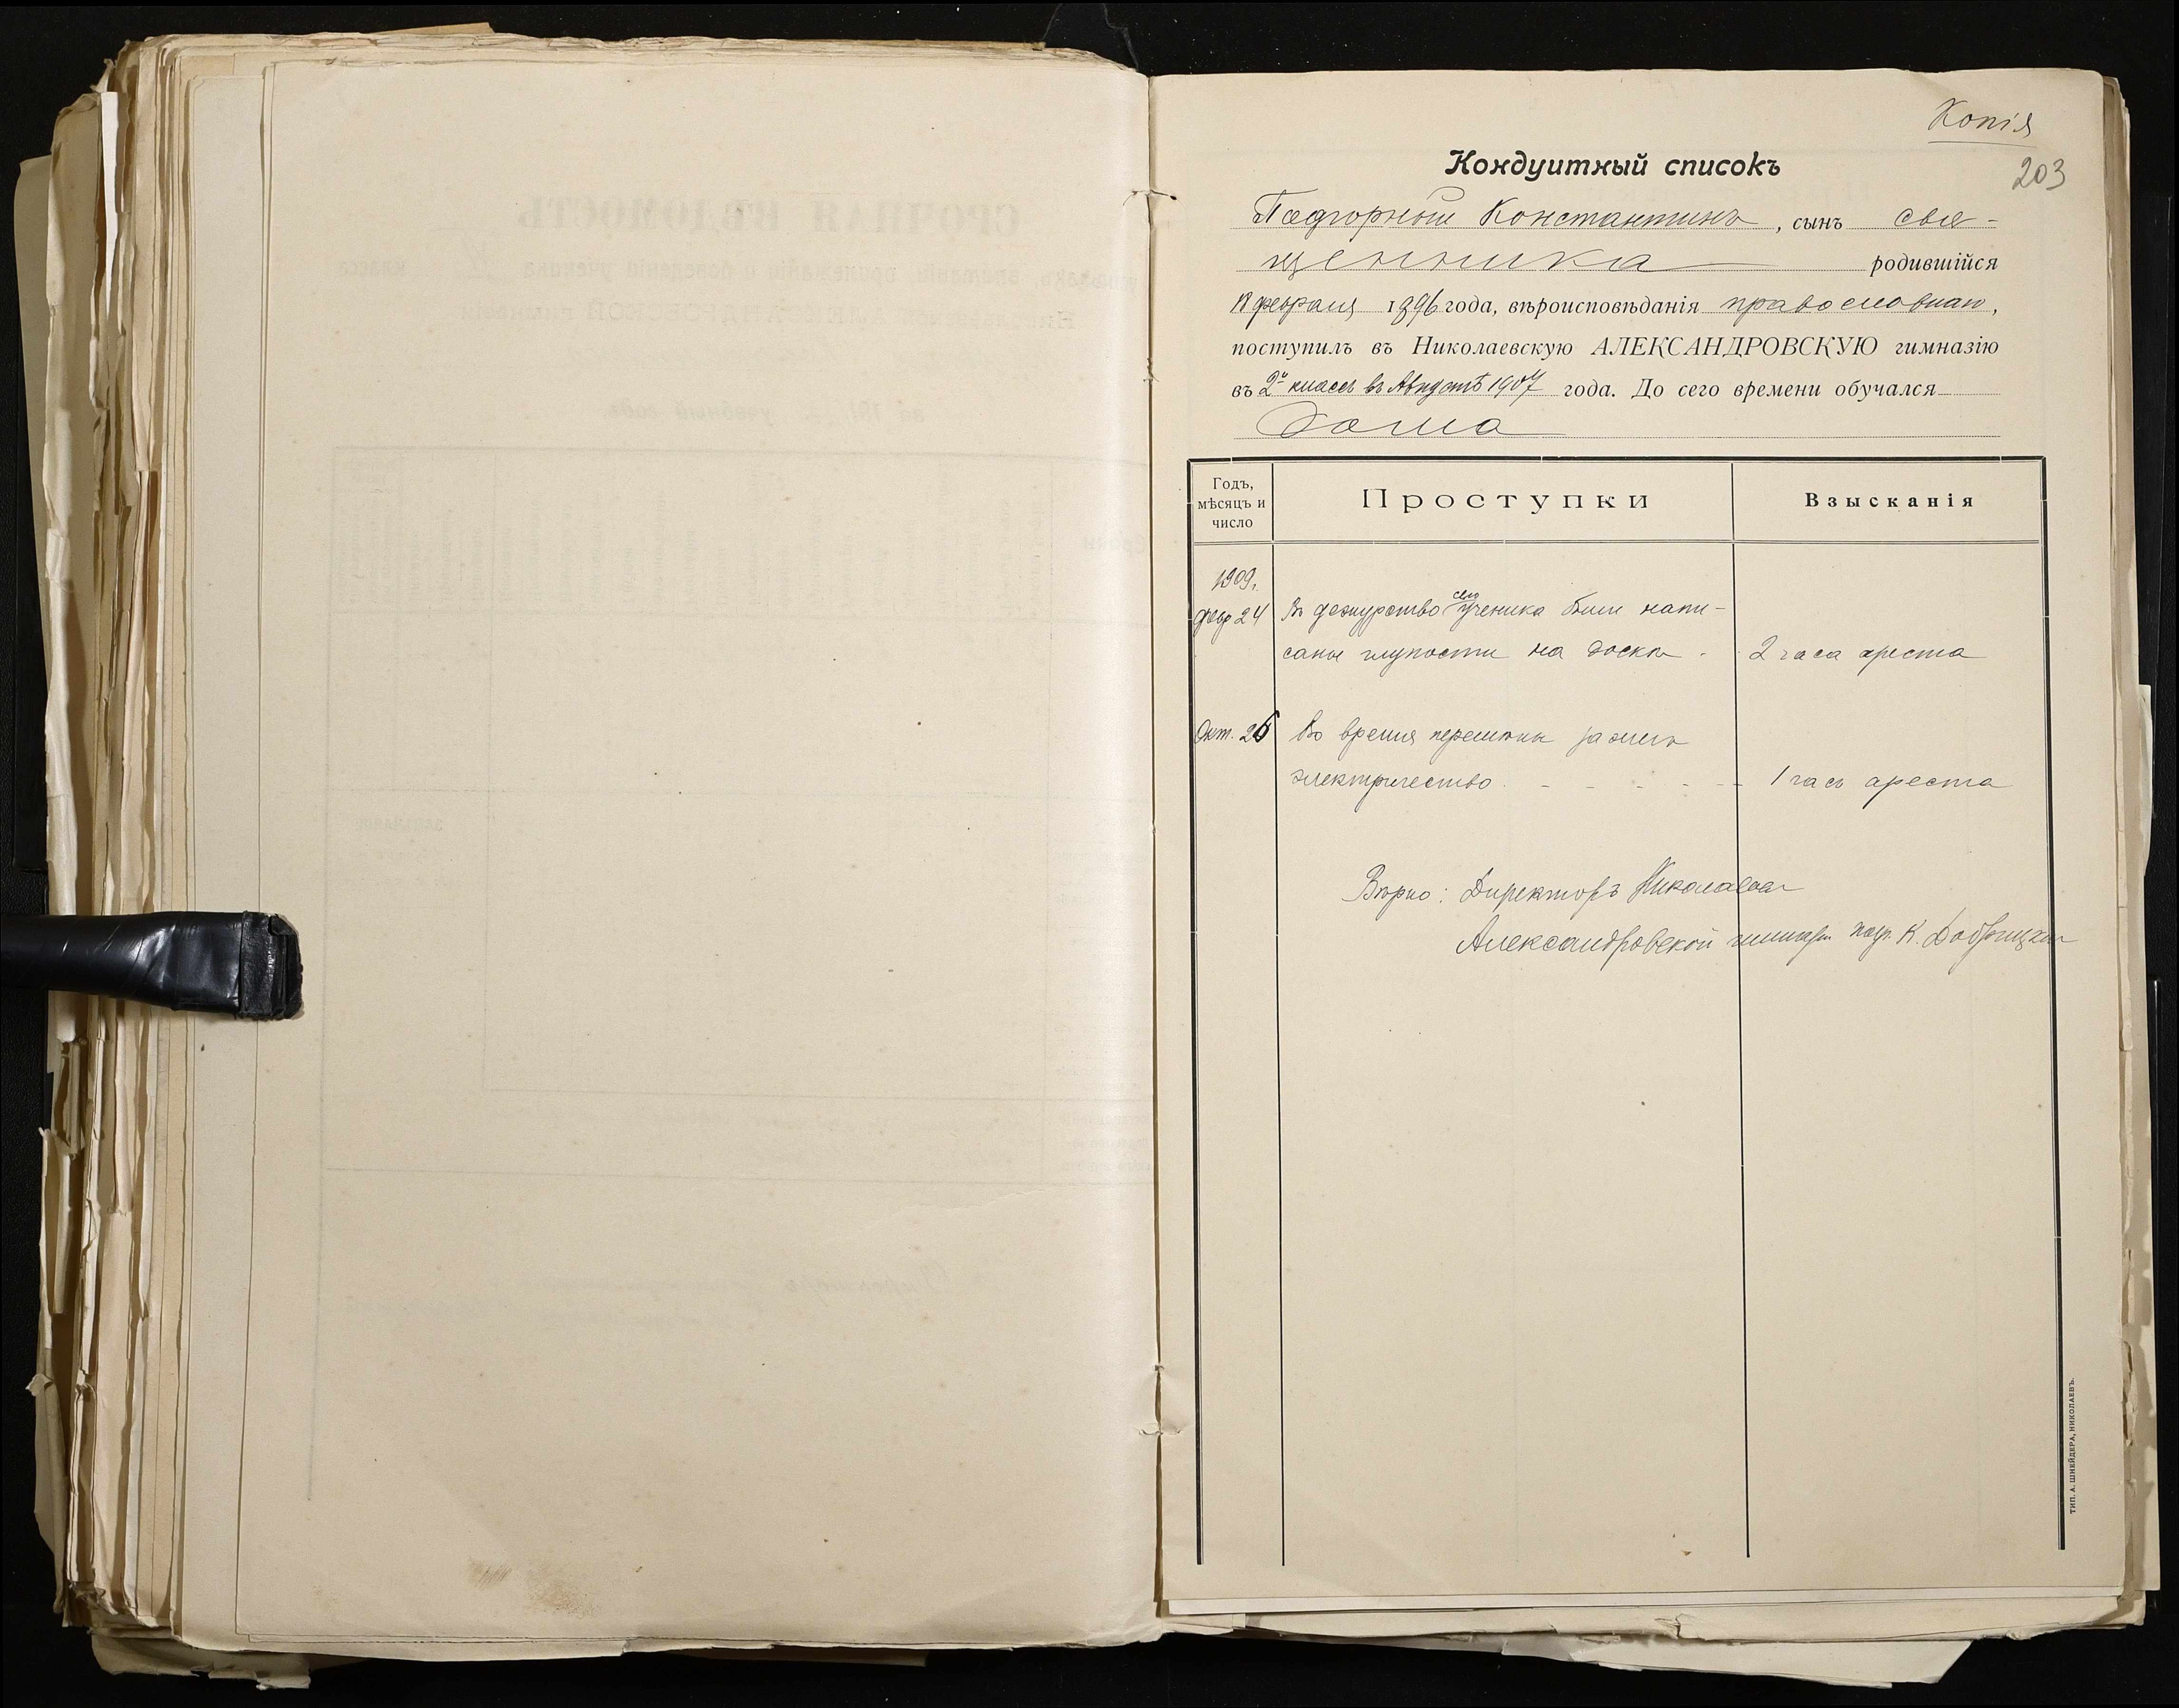 Копія
203
Кондуитный списокъ
Подгорный Константинъ, сынъ свя-
щенника родившійся
февраля 1896 года, вѣроисповѣданія православнаго,
поступилъ въ Николаевскую АЛЕКСАНДРОВСКУЮ гимназію
въ 2й классъ въ Августѣ 1907 года. До сего времени обучался
дома
Годъ, мѣсяцъ и число
Проступки
Взысканія
1909 г.
февр 24 Въ дежурство сего ученика были напи-
саны глупости на доскѣ - 2 часа ареста
Окт. 26 Во время перемѣны зажегъ
электричество - - - - - 1 часъ ареста
Вѣрно: Директоръ Николаевской
Александровской гимназіи К. Добрицкій
ТИП. А. ШНЕЙДЕРА, НИКОЛАЕВЪ.
СРОЧНАЯ ВѢДОМОСТЬ
класса
Николаевской АЛЕКСАНДРОВСКОЙ гимназіи
учебный годъ